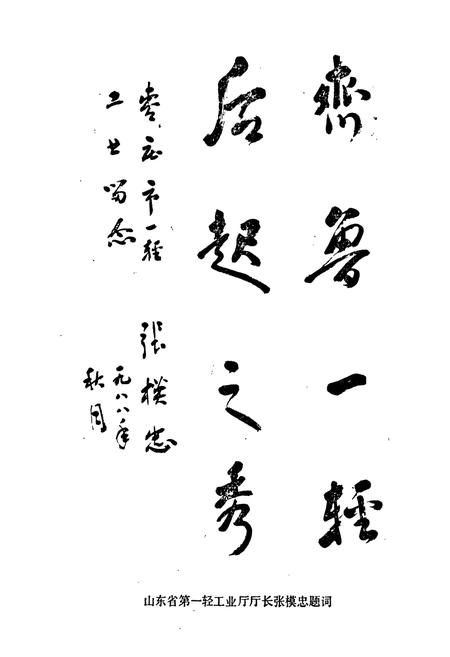 齊鲁一輕
后起之秀
枣庄市一轻
工业留念
张模忠
一九八八年
秋月
山东省第一轻工业厅厅长张模忠题词